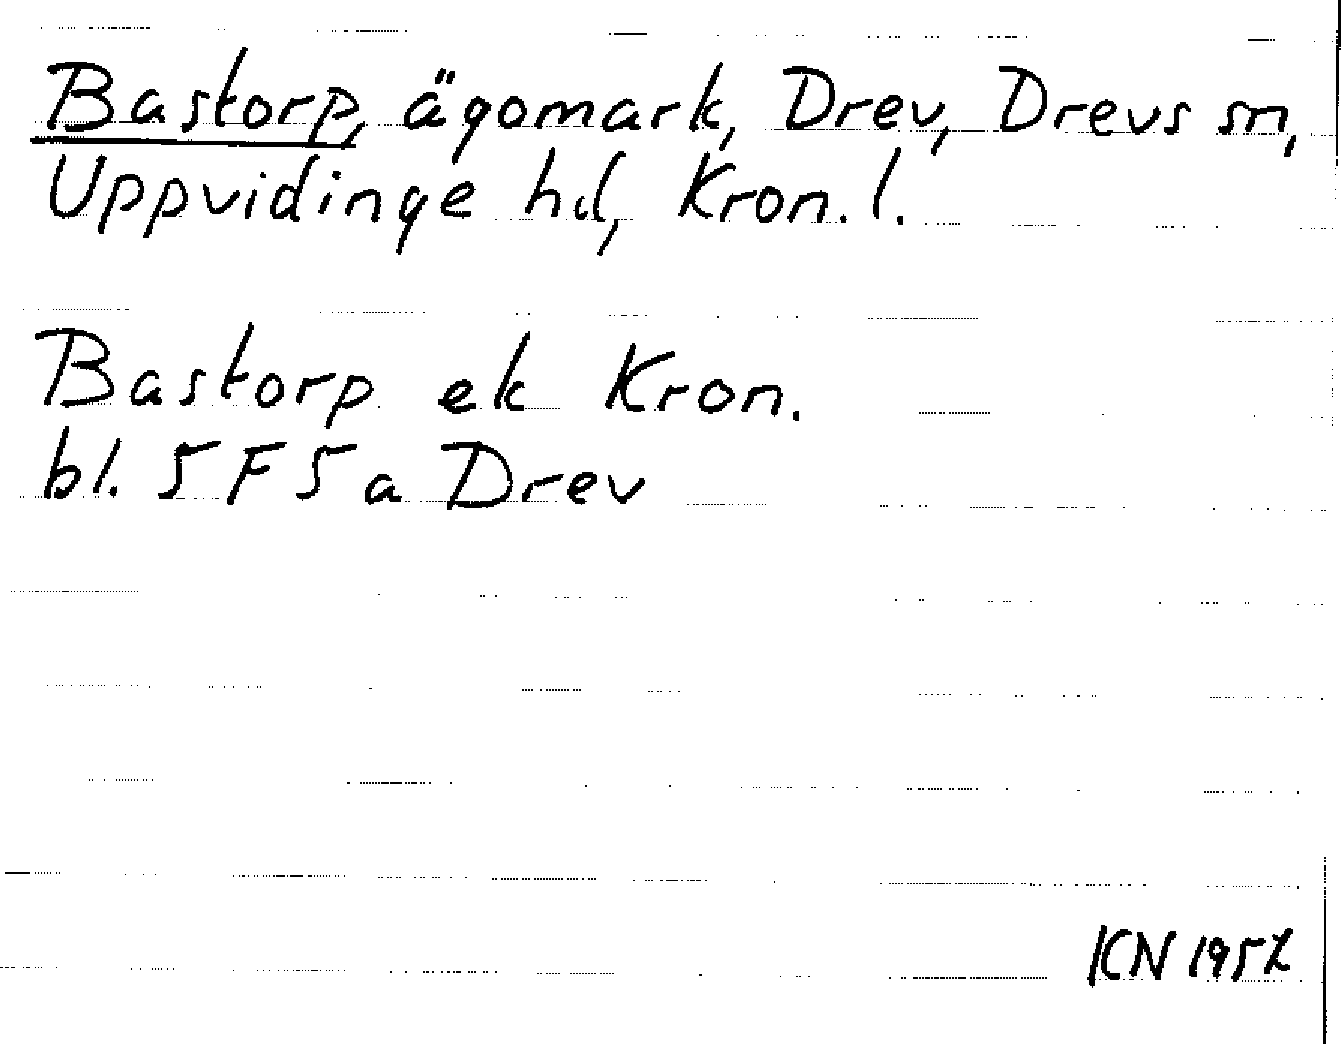 Bastorp, ägomark, Drev, Drevs sn,
Uppvidinge hd, Kron. l.
Bastorp ek Kron.
bl. 5 F 5 a Drev
KN 1957